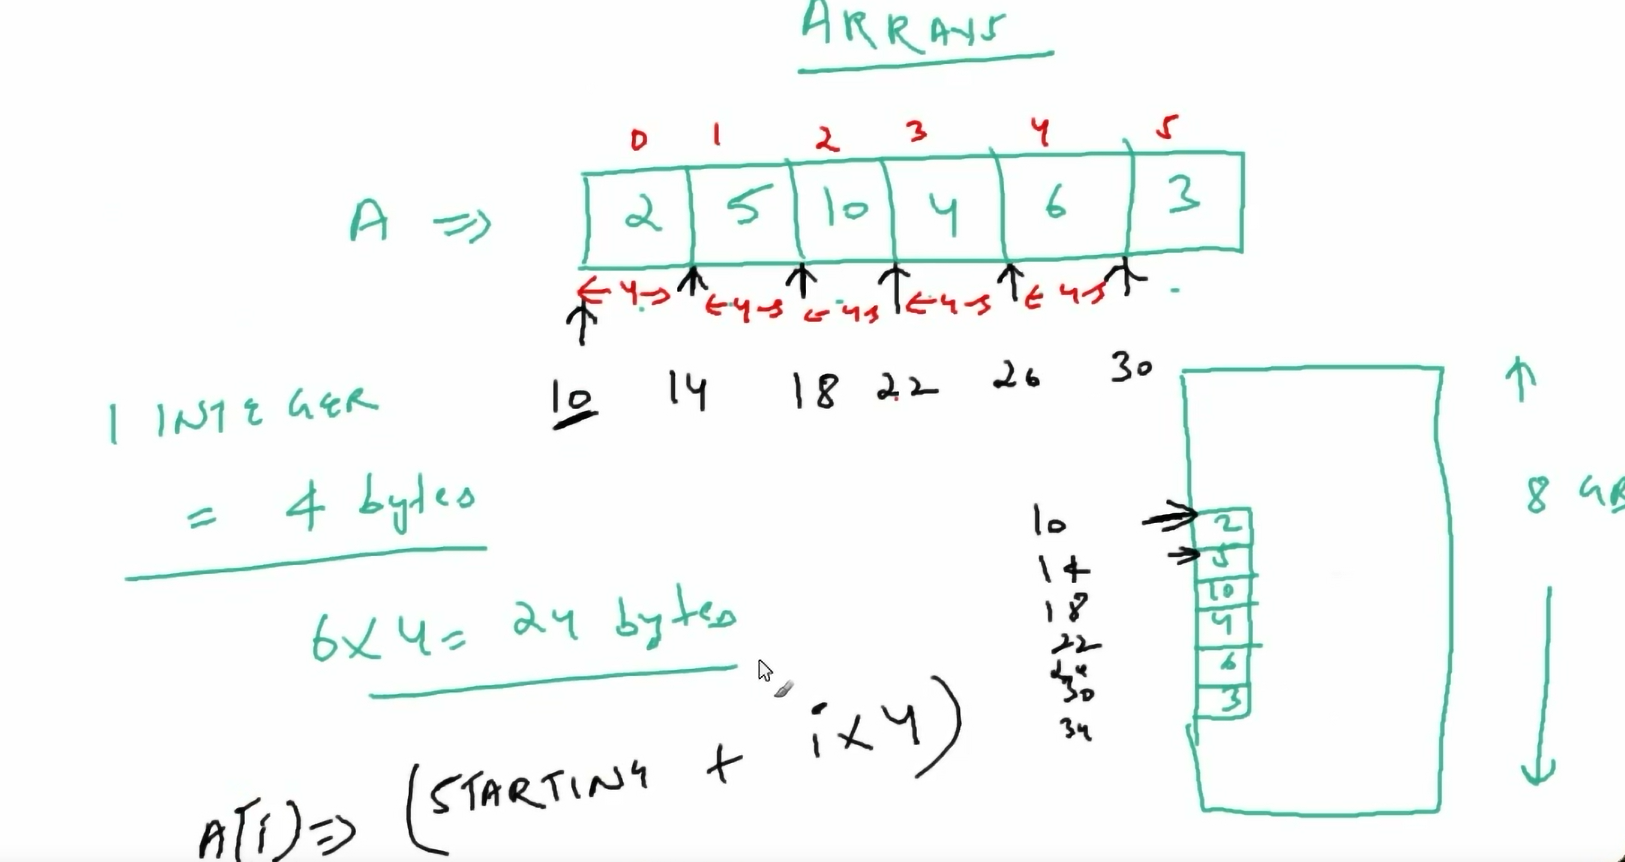 ARRAYS
0 1 2 3 4 5
A ⇒ 2 5 10 4 6 3
←4→ ←4→ ←4→ ←4→ ←4→
10 14 18 22 26 30
1 INTEGER
= 4 bytes
6x4= 24 bytes
A[i] ⇒ (STARTING + ix4)
8 GB
10 2
14 5
18 10
22 4
6
30 3
34